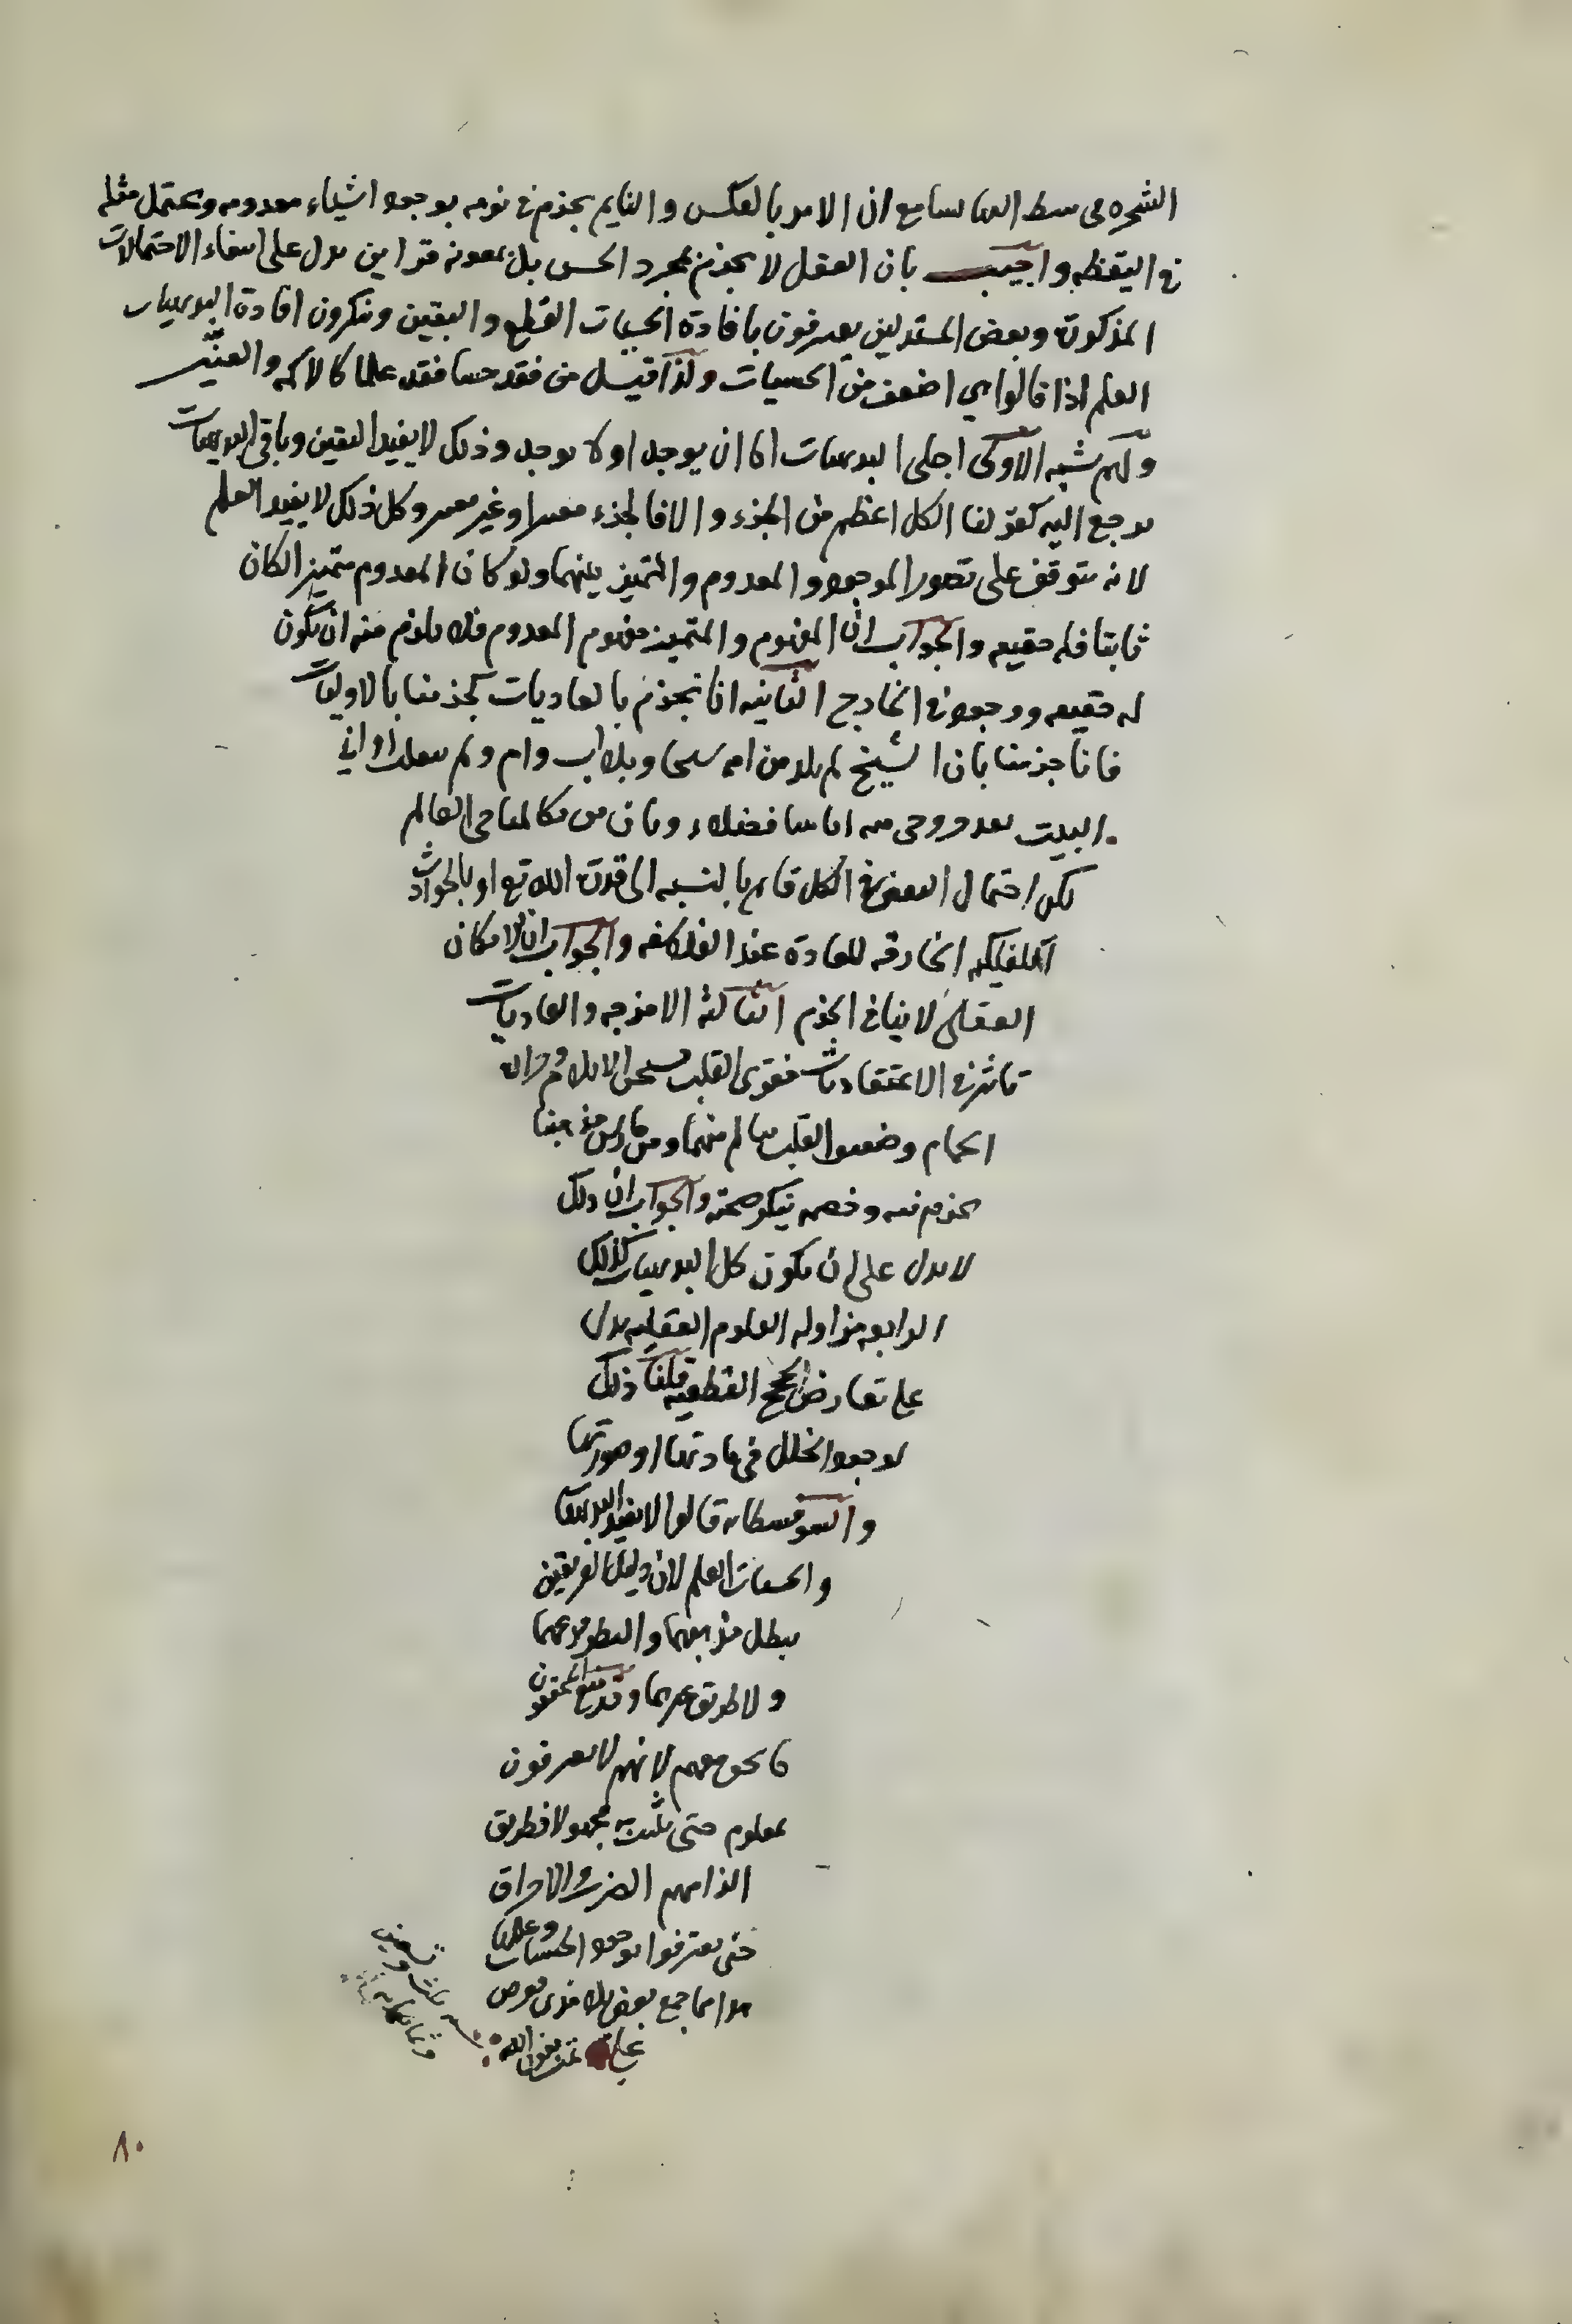 الشجره في سط الما سا مع ان الامر بالعكس والنايم يجزم في نومه بوجود اشياء معدومه ويحتمل مثله
في اليقظه واجيب بان العقل لا يجزم بمجرد الحس بل بمعونه قراين يدل على انتفاء الاحتمالات
المذكورة وبعض المستدلين يعترفون بافادة الحسيات القطع واليقين وينكرون افادة البديهيات
العلم اذا قالوا هي اضعف من الحسيات ولذا قيل من فقد حسا فقد علما كالاكمه والعنين
ولهم شبه الاولى اجلى البديهيات اما ان يوجد او لا يوجد وذلك لا يفيد اليقين وباقي البديهيات
يرجع اليه كقولنا الكل اعظم من الجزء والا فالجزء معتبر او غير معتبر وكل ذلك لا يفيد العلم
لانه يتوقف على تصور الموجود والمعدوم والتميز بينهما ولو كان المعدوم متميز الكان
ثابتا فله حقيقه والجواب ان المفهوم والمتميز مفهوم المعدوم فلا يلزم منه ان يكون
له حقيقه ووجود في الخارج الثانيه انا نجزم بالعاديات كجزمنا بالاوليات
فانا جزمنا بان الشيخ لم يلد من امه شيخا وبلا اب وام ولم ينقلب اواني
البيت بعد خروجي منه اناسا فضلاء وبان من كالمناه في العالم
لكن احتمال النقض في الكل قايم بالنسبه الى قدرة الله تع او بالحوادث
الفلكيه الخارقه للعادة عند الفلاسفه والجواب ان الامكان
العقلي لا ينافي الجزم الثالثة الامزجه والعاديات
تاثر في الاعتقاديات فقوي القلب يستحسن الايلام وذلك
الحمام وضعيف القلب سالم منهما ومن مارس مذهبنا
يجزم فيه وخصمه ينكر صحته والجواب ان ذلك
لا يدل على ان يكون كل البديهيات كذلك
الرابعه مزاوله العلوم العقليه يدل
على تعارض الحجج القطعيه قلنا ذلك
لوجود الخلل في مادتها او صورتها
والسوفسطايه قالوا لا يفيد البديهيات
والحسيات العلم لان دليل الفريقين
يبطل مذهبهما والنظر فرعهما
ولا طريق غيرهما وقد منع المحققون
البحث معهم لانهم لا يعرفون
بمعلوم حتى يثبت به مجهولا فطريق
الزامهم الضرب والاحراق
حتى يعترفوا بوجود الحسيات وعللها
هذا مما جمع بعض تلامذي بعرض
علي تمت بعون الله
سنه ثلث وتسعين
وثمانمايه
٨٠